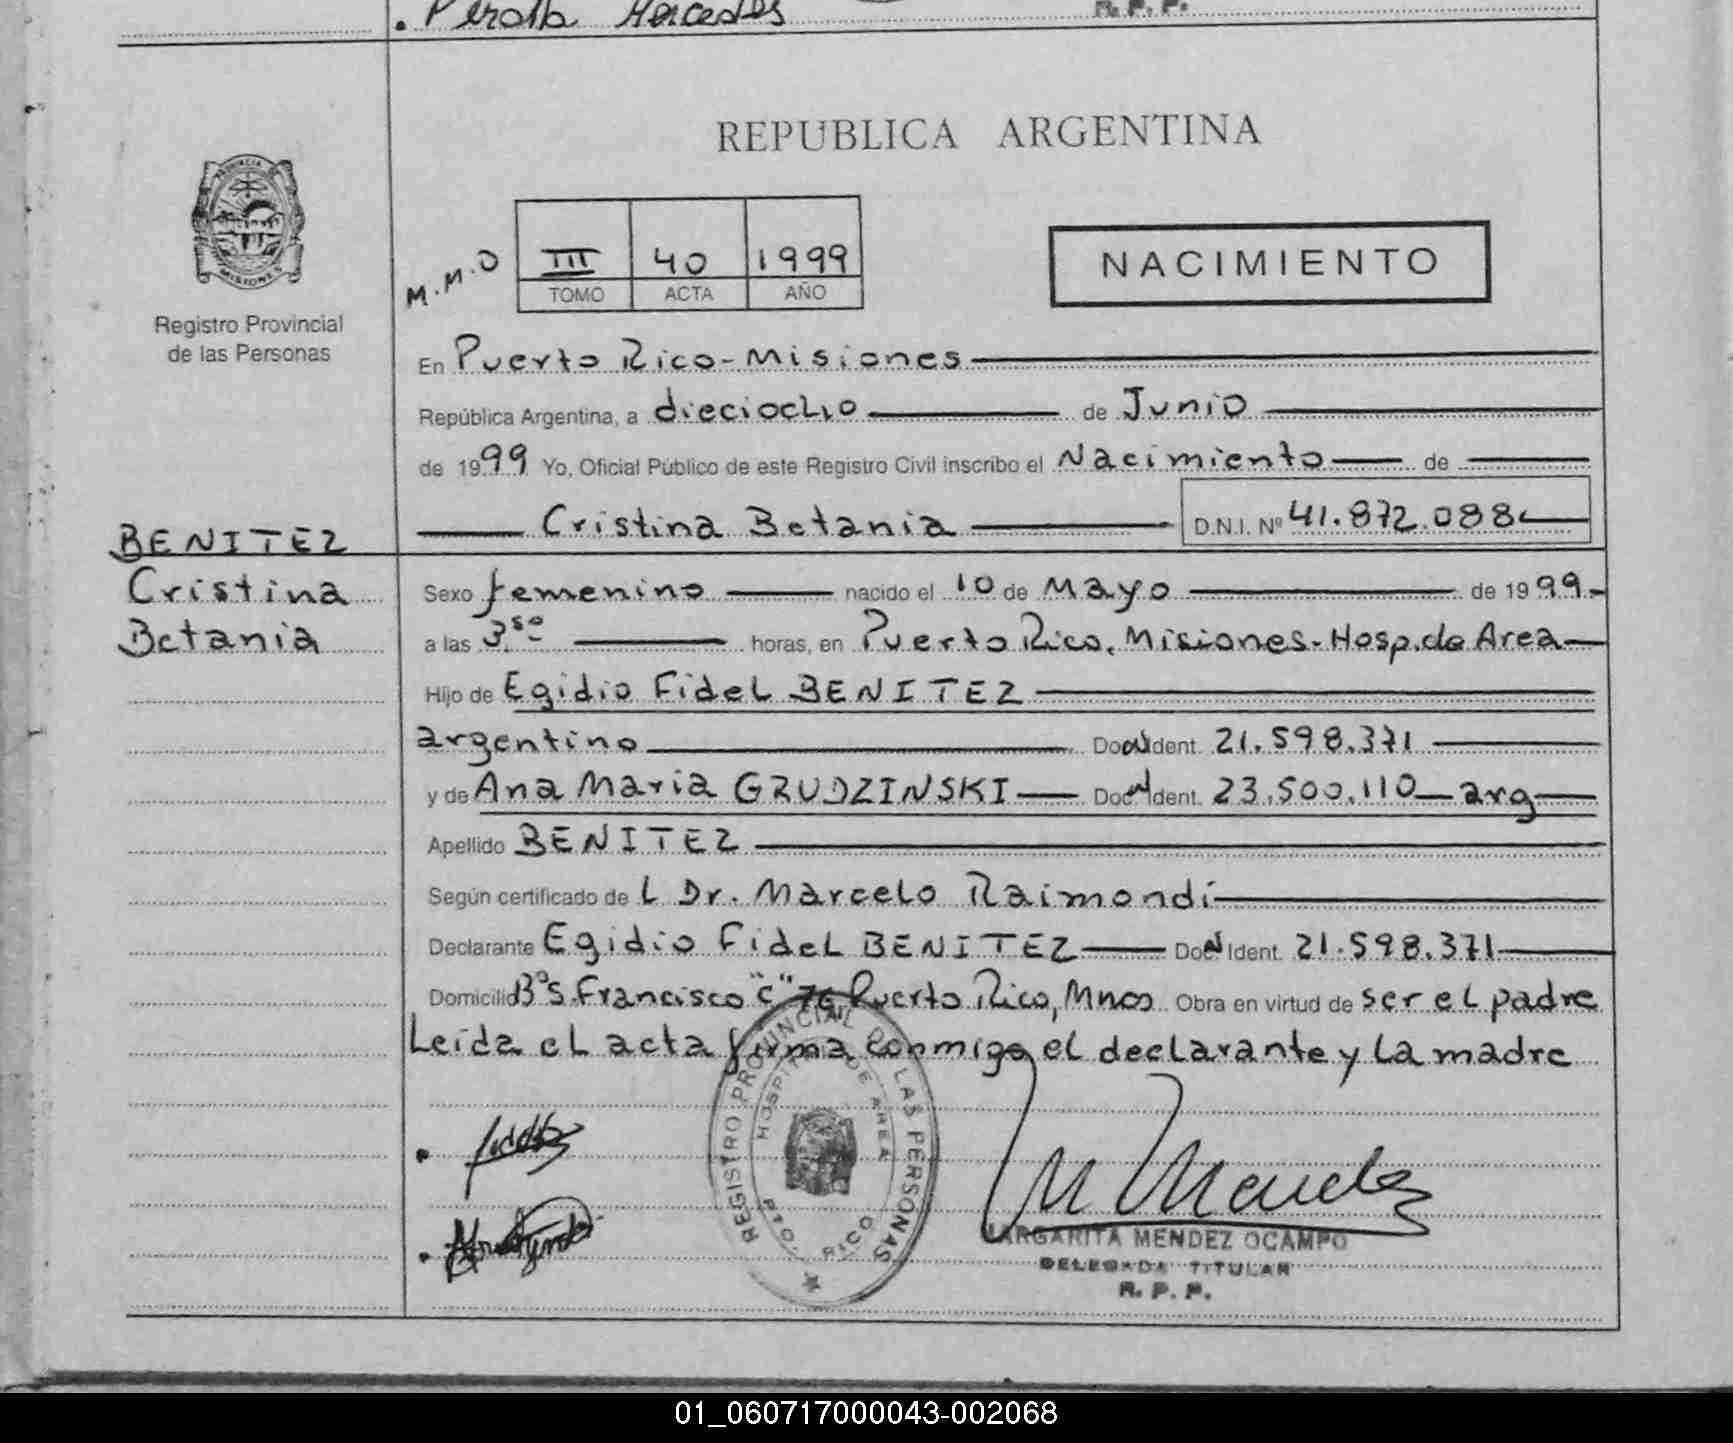 . Peralta Mercedes
R. P. P.
REPUBLICA ARGENTINA
PROVINCIA DE MISIONES
Registro Provincial
de las Personas
M.M.O
III 40 1999
TOMO ACTA AÑO
NACIMIENTO
En Puerto Rico-Misiones
República Argentina, a dieciocho de Junio
de 1999 Yo, Oficial Público de este Registro Civil inscribo el Nacimiento de
Cristina Betania D.N.I. Nº 41.872.088
BENITEZ
Cristina
Betania
Sexo femenino nacido el 10 de Mayo de 1999-
a las 3.50 horas, en Puerto Rico, Misiones-Hosp.de Area
Hijo de Egidio Fidel BENITEZ
argentino Doc. Ident. 21.598.371
y de Ana Maria GRUDZINSKI Doc. Ident. 23.500.110 arg
Apellido BENITEZ
Según certificado de L Dr. Marcelo Raimondi
Declarante Egidio Fidel BENITEZ Doc. Ident. 21.598.371
Domicilio Bº S. Francisco "C" 76, Puerto Rico, Mnes Obra en virtud de ser el padre
Leida el acta firma conmigo el declarante y la madre
REGISTRO PROVINCIAL DE LAS PERSONAS
HOSPITAL DE AREA
PTO. RICO
M Mendez
MARGARITA MENDEZ OCAMPO
DELEGADA TITULAR
R. P. P.
01_060717000043-002068